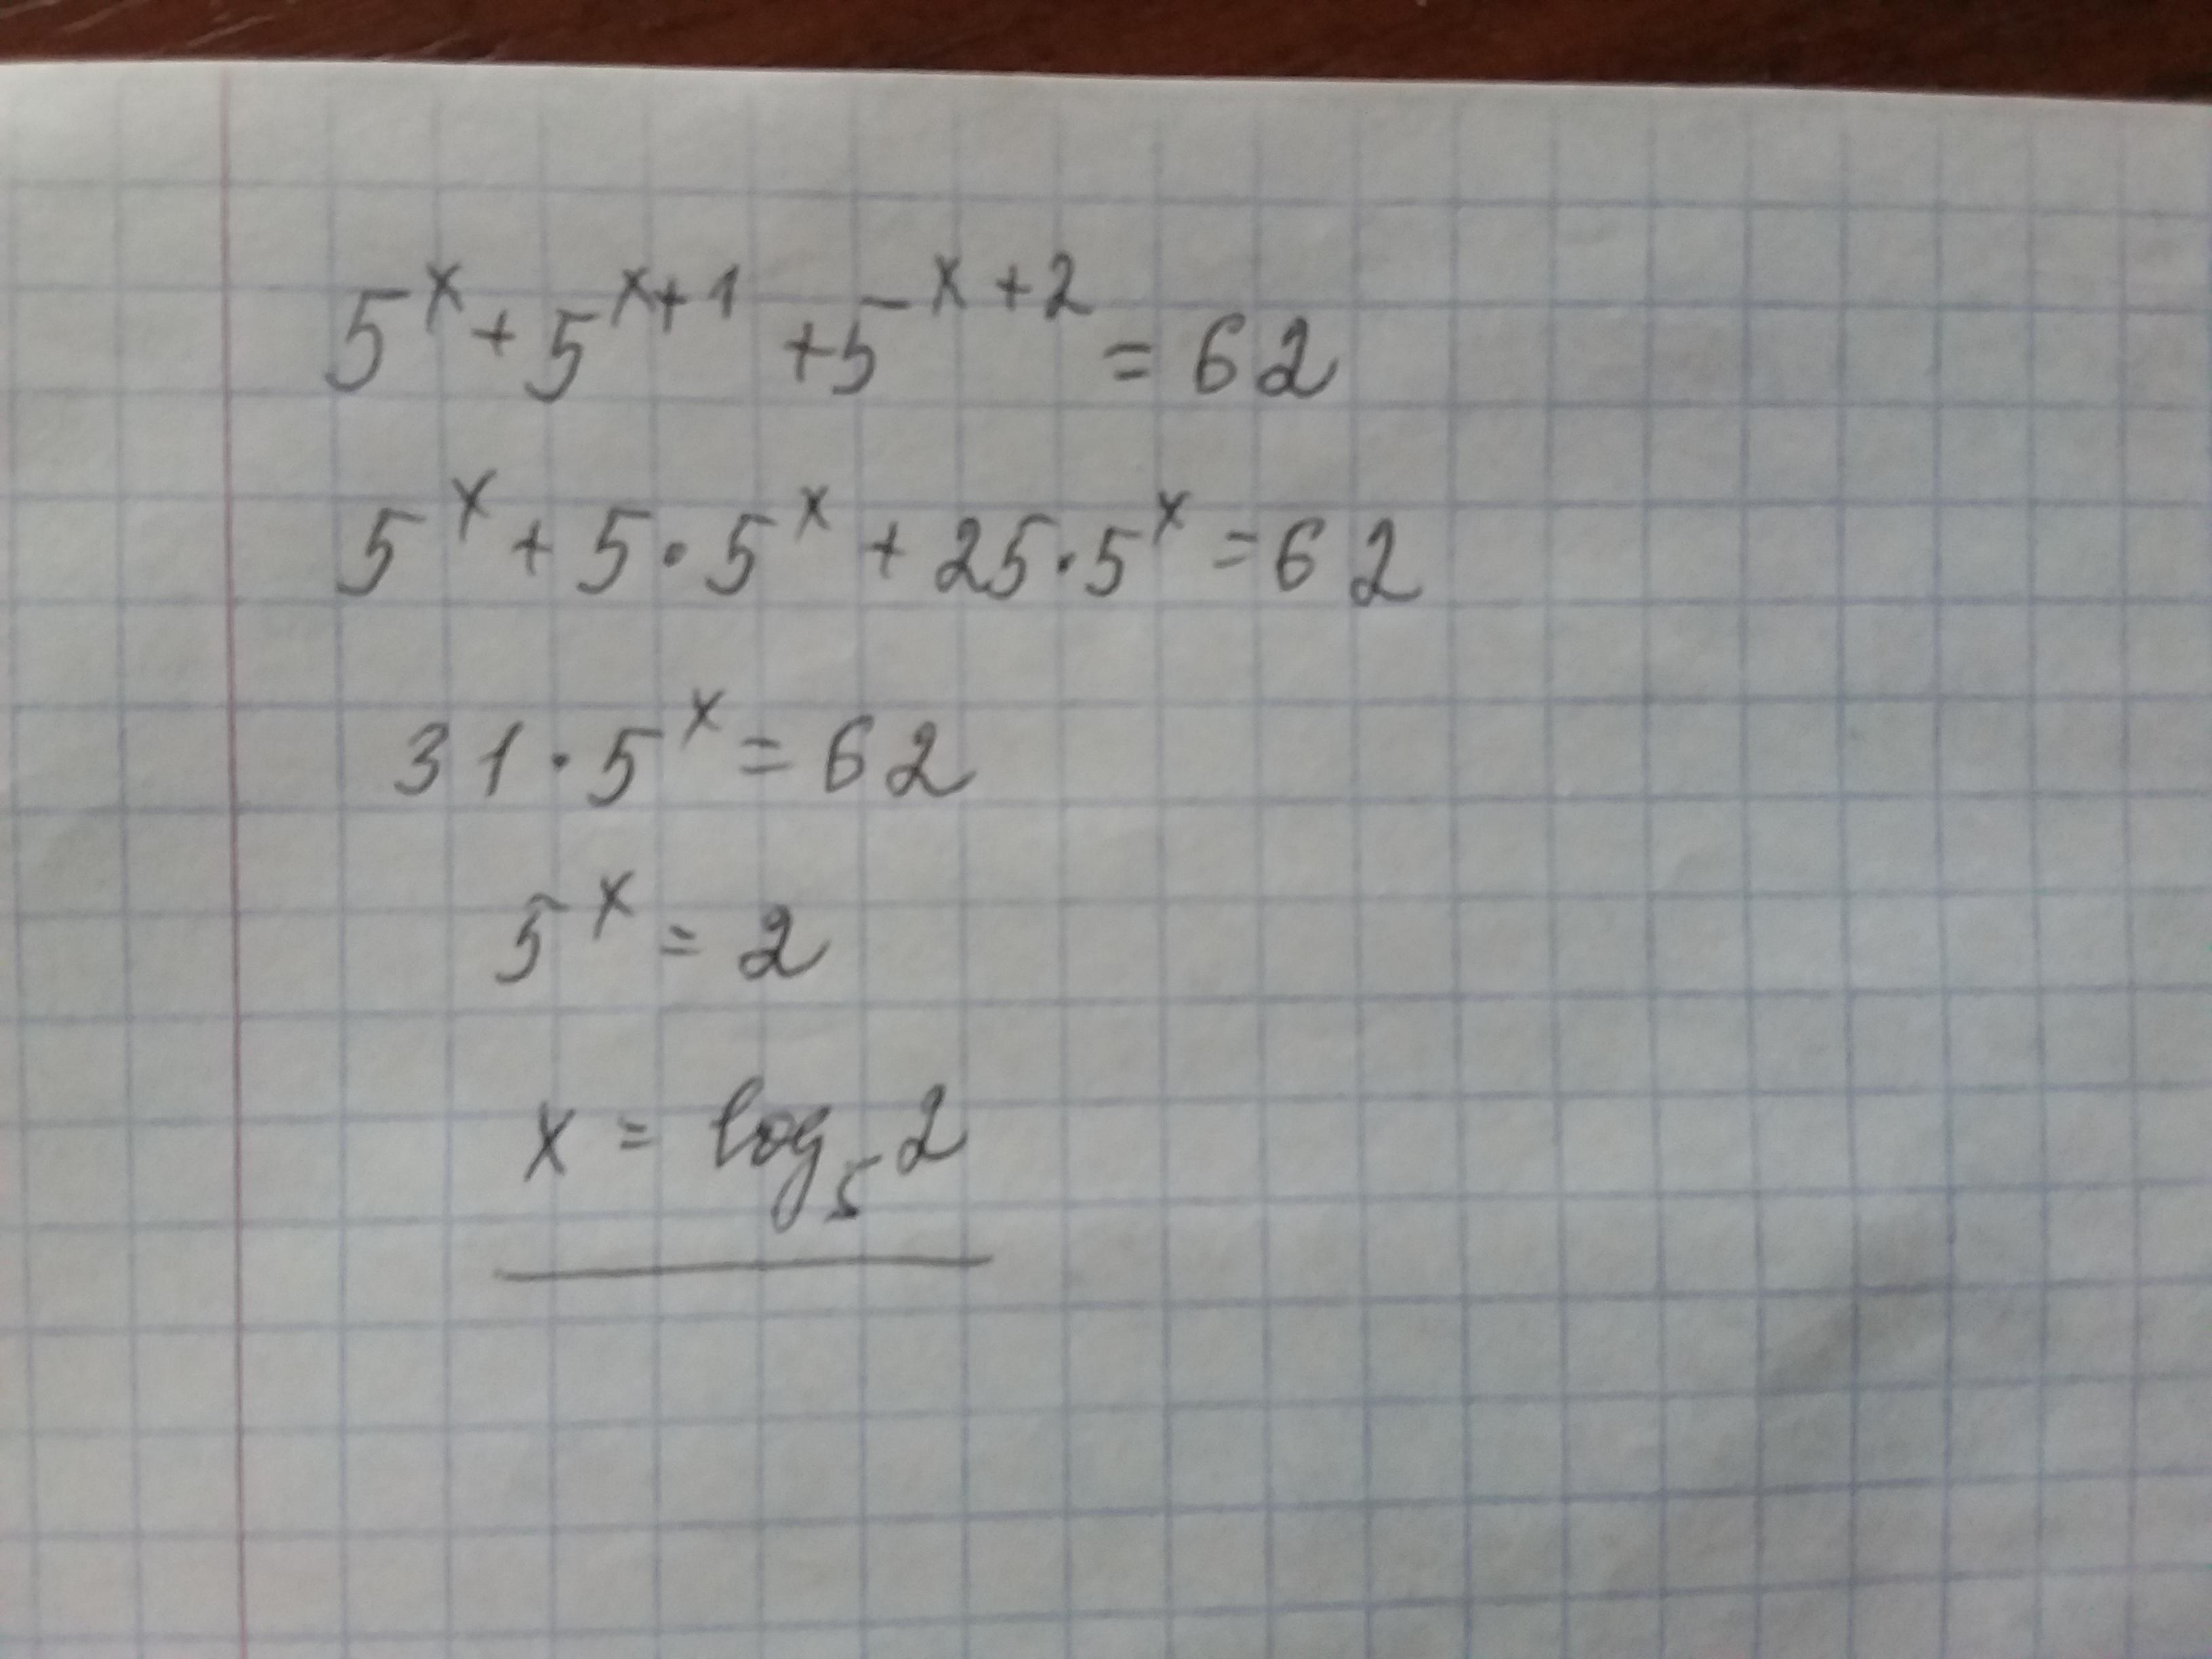 5^x + 5^{x+1} + 5^{x+2} = 62
5^x + 5 · 5^x + 25 · 5^x = 62
31 · 5^x = 62
5^x = 2
x = log_5 2